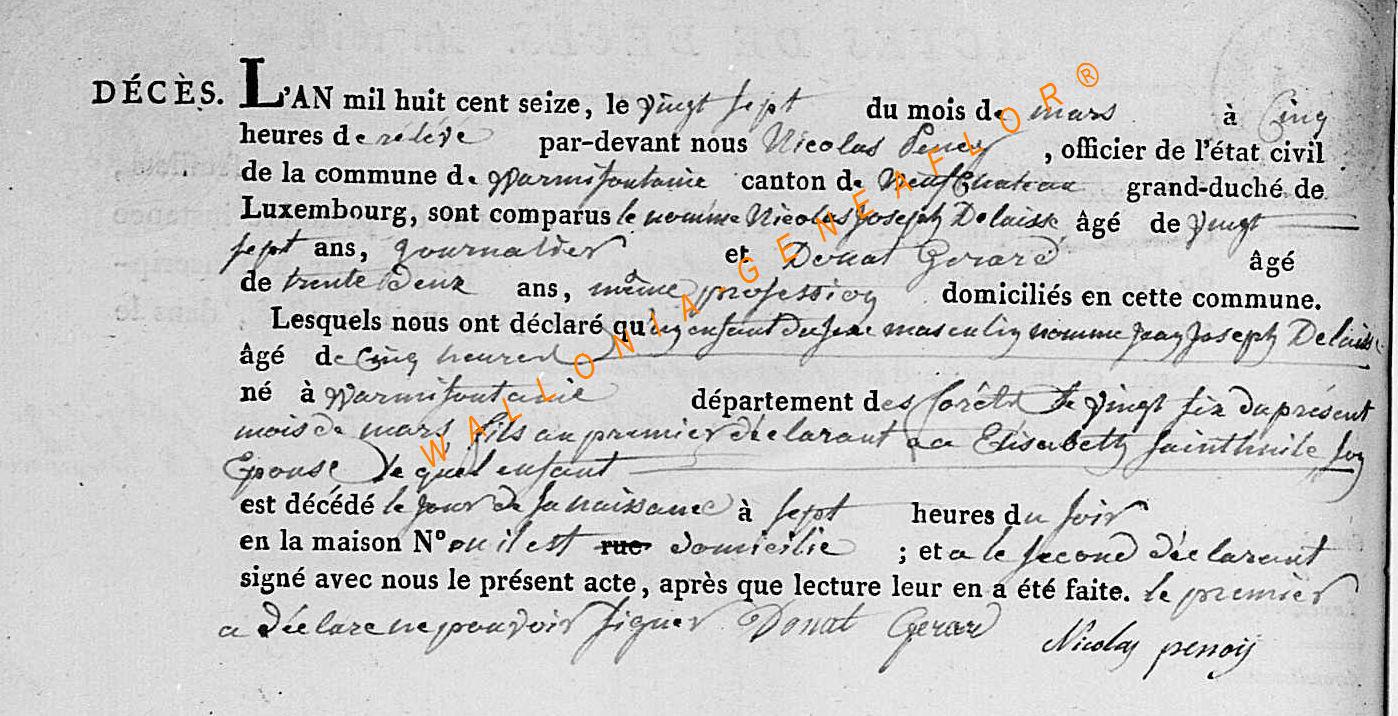 DÉCÈS. L'AN mil huit cent seize, le vingt sept du mois de mars à Cinq
heures de rélévé par-devant nous Nicolas , officier de l'état civil
de la commune de Warmifontaine canton de Neufchateau grand-duché de
Luxembourg, sont comparus le nomme Nicolas Joseph Delaisse âgé de vingt
sept ans, journalier et Donat Gerard âgé
de trente Deux ans, même profession domiciliés en cette commune.
Lesquels nous ont déclaré qu'un enfant du sexe masculin nomme Jean Joseph Delaisse
âgé de Cinq heures
né à Warmifontaine département des forêts le vingt six du présent
mois de mars, fils au premier déclarant & a Elisabeth Sainthuile son
Epouse, le quel enfant
est décédé le jour de sa naissance à sept heures du soir
en la maison N° ou il est rue domicilie ; et a le second déclarant
signé avec nous le présent acte, après que lecture leur en a été faite. le premier
a déclare ne pouvoir signer Donat Gerard Nicolas penois
WALLONIA-GENEAFLOR®